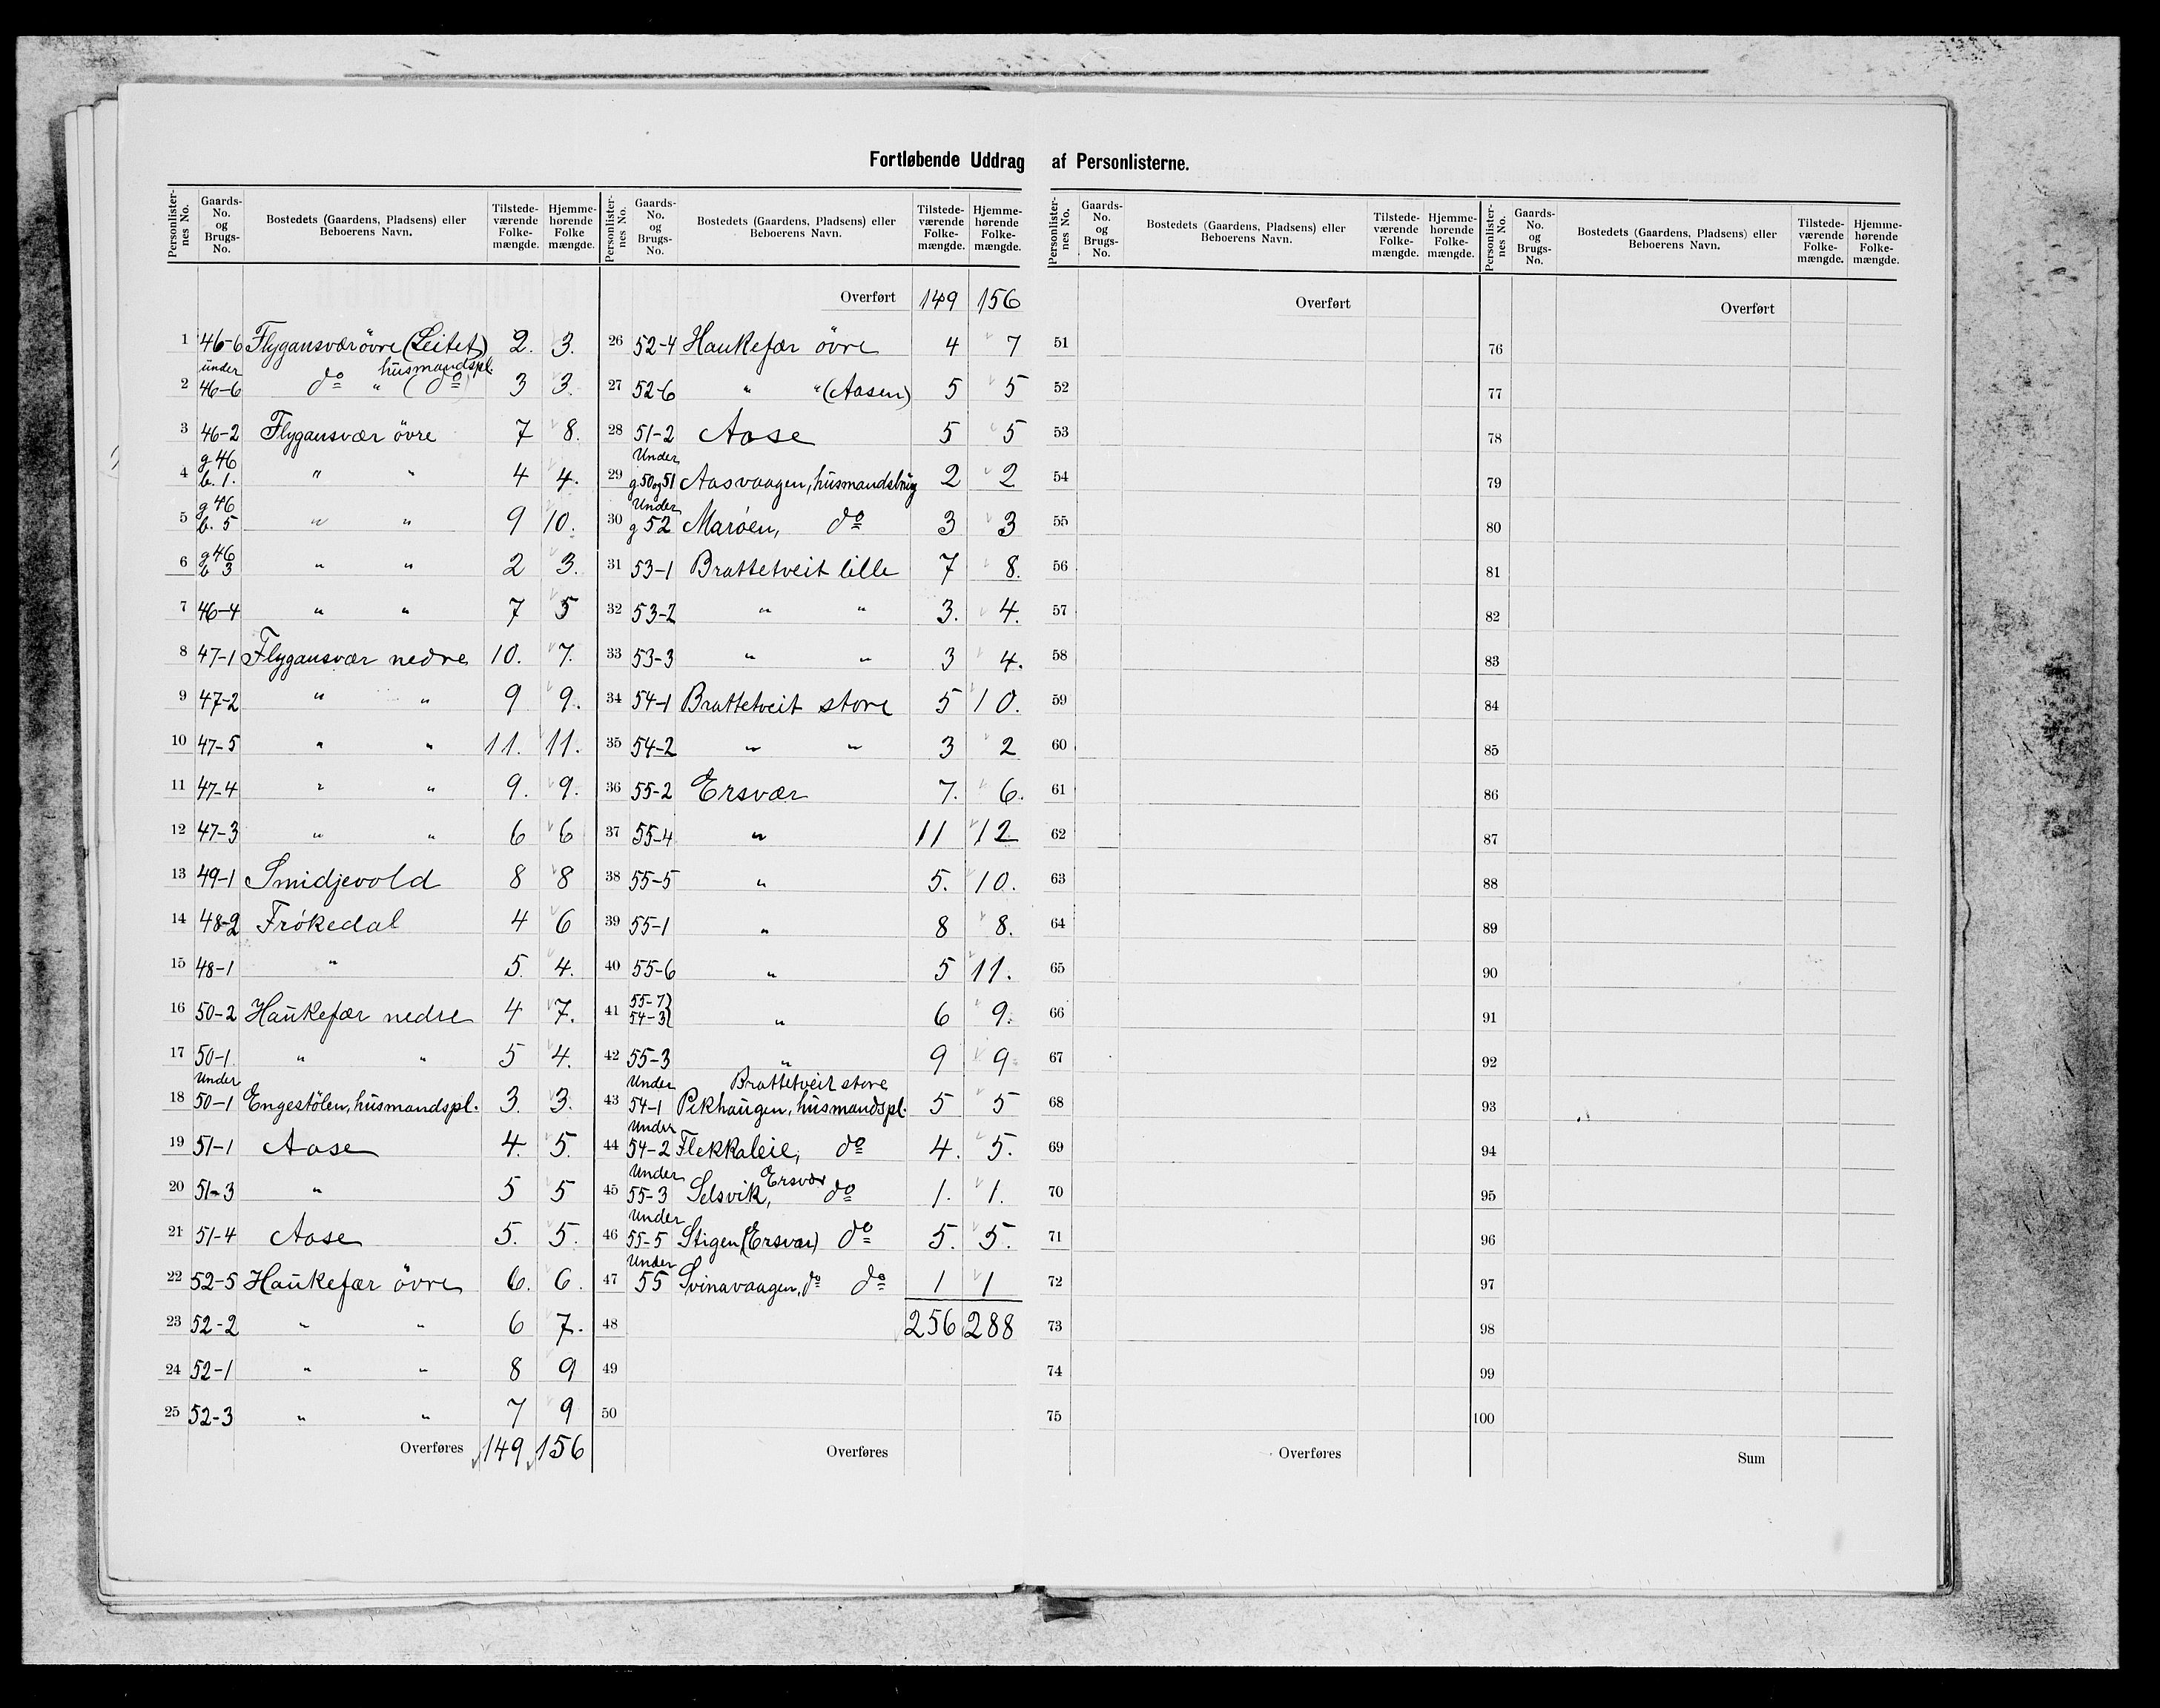 Fortløbende Uddrag af Personlisterne.
Personlisternes No. Gaards-No. og Brugs-No. Bostedets (Gaardens, Pladsens) eller Beboerens Navn. Tilstedeværende Folkemængde. Hjemmehørende Folkemængde.
1 46-6 Flygansvær övre (Leitet) 2. 3.
2 under 46-6 do " (do) husmandspl. 3 3.
3 46-2 Flygansvær övre 7 8.
4 g 46 b. 1. " " 4 4.
5 g 46 b. 5 " " 9 10.
6 g 46 b 3 " " 2 3.
7 46-4 " " 7 5
8 47-1 Flygansvær nedre 10. 7.
9 47-2 " " 9 9.
10 47-5 " " 11. 11.
11 47-4 " " 9. 9.
12 47-3 " " 6 6
13 49-1 Smidjevold 8 8
14 48-2 Frökedal 4 6
15 48-1 " 5. 4.
16 50-2 Haukefær nedre 4 7.
17 50-1. " " 5 4.
18 Under 50-1 Engestölen, husmandspl. 3. 3.
19 51-1 Aase 4. 5.
20 51-3 " 5 5
21 51-4 Aase 5. 5.
22 52-5 Haukefær övre 6. 6.
23 52-2 " " 6 7.
24 52-1 " " 8 9
25 52-3 " " 7 9
Overføres 149 156
Personlisternes No. Gaards-No. og Brugs-No. Bostedets (Gaardens, Pladsens) eller Beboerens Navn. Tilstedeværende Folkemængde. Hjemmehørende Folkemængde.
Overført 149 156
26 52-4 Haukefær övre 4 7
27 52-6 " " (Aasen) 5 5
28 51-2 Aase 5 5
29 Under g. 50 og 51 Aasvaagen, husmandsbrug 2 2
30 Under g 52 Maröen, do 3 3
31 53-1 Brattetveit lille 7 8.
32 53-2 " " 3. 4.
33 53-3 " " 3 4.
34 54-1 Brattetveit store 5 10.
35 54-2 " " 3 2
36 55-2 Ersvær 7. 6.
37 55-4 " 11 12
38 55-5 " 5. 10.
39 55-1 " 8 8.
40 55-6 " 5 11.
41 55-7) 54-3) " 6 9.
42 55-3 " 9 9
43 Under 54-1 Brattetveit store Pikhaugen, husmandspl. 5 5
44 Under 54-2 Flekkaleie, do 4. 5.
45 Under 55-3 Selsvik, Ersvær do 1. 1.
46 Under 55-5 Stigen (Ersvær) do 5. 5.
47 Under 55 Svinavaagen, do do 1 1
48 256 288
49
50
Overføres
Personlisternes No. Gaards-No. og Brugs-No. Bostedets (Gaardens, Pladsens) eller Beboerens Navn. Tilstedeværende Folkemængde. Hjemmehørende Folkemængde.
Overført
51
52
53
54
55
56
57
58
59
60
61
62
63
64
65
66
67
68
69
70
71
72
73
74
75
Overføres
Personlisternes No. Gaards-No. og Brugs-No. Bostedets (Gaardens, Pladsens) eller Beboerens Navn. Tilstedeværende Folkemængde. Hjemmehørende Folkemængde.
Overført
76
77
78
79
80
81
82
83
84
85
86
87
88
89
90
91
92
93
94
95
96
97
98
99
100
Sum